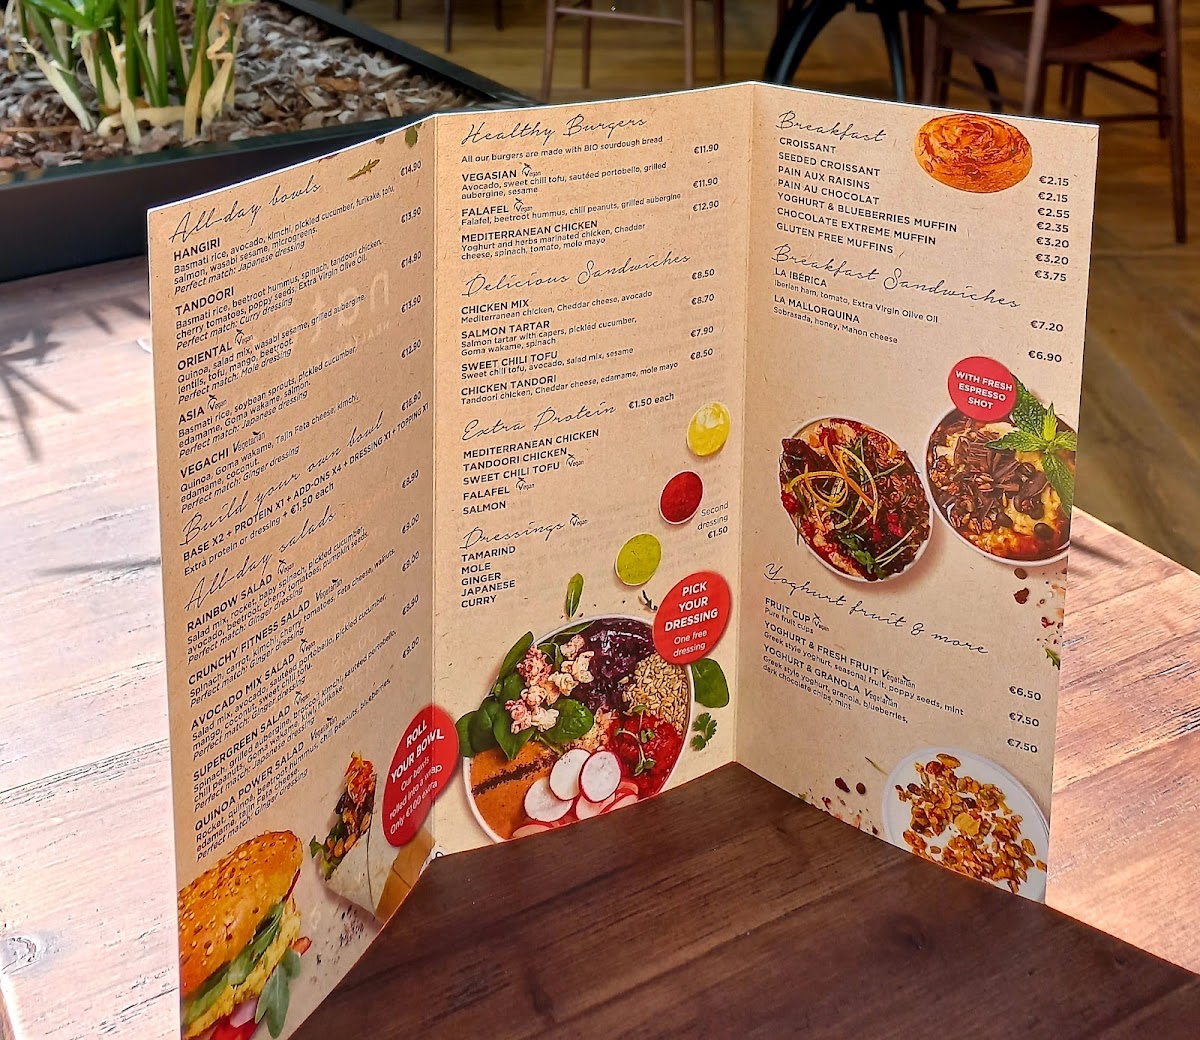 All-day bowls
HANGIRI €14.90
Basmati rice, avocado, kimchi, pickled cucumber, furikake, tofu,
salmon, wasabi sesame, microgreens.
Perfect match: Japanese dressing
TANDOORI €13.90
Basmati rice, beetroot hummus, spinach, tandoori chicken,
cherry tomatoes, poppy seeds, Extra Virgin Olive Oil.
Perfect match: Curry dressing
ORIENTAL Vegan €14.90
Quinoa, salad mix, wasabi sesame, grilled aubergine,
lentils, tofu, mango, beetroot.
Perfect match: Mole dressing
ASIA Vegan €13.90
Basmati rice, soybean sprouts, pickled cucumber,
edamame, Goma wakame, salmon.
Perfect match: Japanese dressing
VEGACHI Vegetarian €12.90
Quinoa, Goma wakame, Tajin Feta cheese, kimchi,
edamame, coconut.
Perfect match: Ginger dressing
Build your own bowl
BASE X2 + PROTEIN X1 + ADD-ONS X4 + DRESSING X1 + TOPPING X1
Extra protein or dressing + €1,50 each
All-day salads
RAINBOW SALAD Vegan
Salad mix, rocket, baby spinach, pickled cucumber,
avocado, beetroot, cherry tomatoes, pumpkin seeds.
Perfect match: Ginger dressing
CRUNCHY FITNESS SALAD Vegetarian
Spinach, carrot, kimchi, cherry tomatoes, Feta cheese, walnuts.
Perfect match: Ginger dressing
AVOCADO MIX SALAD Vegan
Salad mix, avocado, sautéed portobello, pickled cucumber,
mango, coconut, sweet chili tofu.
Perfect match: Ginger dressing
SUPERGREEN SALAD Vegan
Spinach, grilled aubergine, broccoli, kimchi, sautéed portobello,
chili peanuts, sesame, kiwi, furikake.
Perfect match: Japanese dressing
QUINOA POWER SALAD Vegetarian
Rocket, quinoa, beetroot hummus, chili peanuts, blueberries,
edamame, tajin Feta cheese.
Perfect match: Ginger dressing
ROLL
YOUR BOWL
Our bowls
rolled into a wrap
Only €1.00 extra
Healthy Burgers
All our burgers are made with BIO sourdough bread
VEGASIAN Vegan €11.90
Avocado, sweet chili tofu, sautéed portobello, grilled
aubergine, sesame
FALAFEL Vegan €11.90
Falafel, beetroot hummus, chili peanuts, grilled aubergine
MEDITERRANEAN CHICKEN €12.90
Yoghurt and herbs marinated chicken, Cheddar
cheese, spinach, tomato, mole mayo
Delicious Sandwiches
CHICKEN MIX €8.50
Mediterranean chicken, Cheddar cheese, avocado
SALMON TARTAR €8.70
Salmon tartar with capers, pickled cucumber,
Goma wakame, spinach
SWEET CHILI TOFU €7.90
Sweet chili tofu, avocado, salad mix, sesame
CHICKEN TANDORI €8.50
Tandoori chicken, Cheddar cheese, edamame, mole mayo
Extra Protein €1.50 each
MEDITERRANEAN CHICKEN
TANDOORI CHICKEN
SWEET CHILI TOFU Vegan
FALAFEL Vegan
SALMON
Dressings Vegan
Second
dressing
€1.50
TAMARIND
MOLE
GINGER
JAPANESE
CURRY
PICK
YOUR
DRESSING
One free
dressing
Breakfast
CROISSANT €2.15
SEEDED CROISSANT €2.15
PAIN AUX RAISINS €2.55
PAIN AU CHOCOLAT €2.35
YOGHURT & BLUEBERRIES MUFFIN €3.20
CHOCOLATE EXTREME MUFFIN €3.20
GLUTEN FREE MUFFINS €3.75
Breakfast Sandwiches
LA IBÉRICA €7.20
Iberian ham, tomato, Extra Virgin Olive Oil
LA MALLORQUINA €6.90
Sobrasada, honey, Mahon cheese
WITH FRESH
ESPRESSO
SHOT
Yoghurt fruit & more
FRUIT CUP Vegan €6.50
Pure fruit cups
YOGHURT & FRESH FRUIT Vegetarian €7.50
Greek style yoghurt, seasonal fruit, poppy seeds, mint
YOGHURT & GRANOLA Vegetarian €7.50
Greek style yoghurt, granola, blueberries,
dark chocolate chips, mint